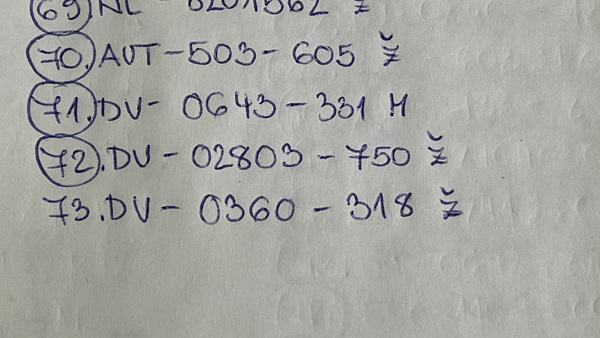 69. NL - 0201562 Ž
70. AUT-503-605 Ž
71. DV- 0643-331 M
72. DV-02803-750 Ž
73. DV-0360-318 Ž